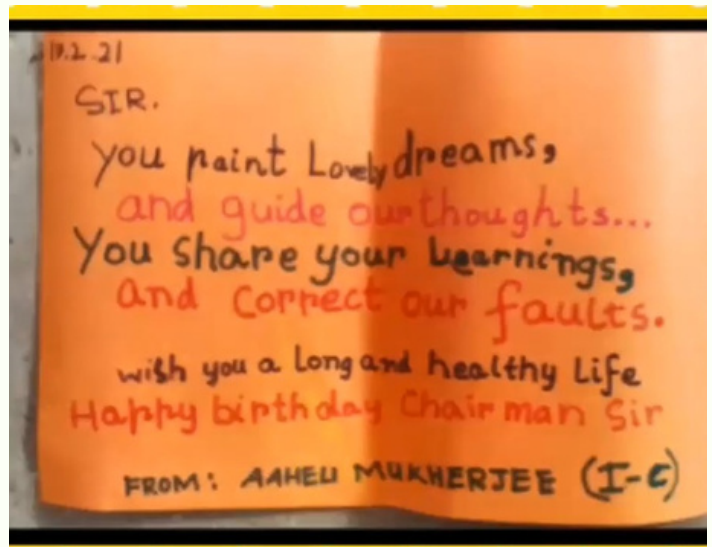 19.2.21
SIR.
You paint Lovely dreams,
and guide our thoughts...
You share your Learnings,
and correct our faults.
wish you a Long and healthy Life
Happy birthday Chairman Sir
FROM: AAHELI MUKHERJEE (I-C)